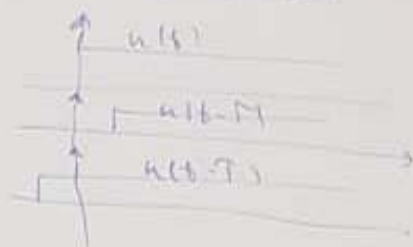 u(t)
u(t-T)
u(t-T)